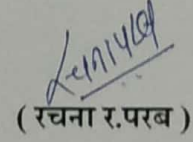 ( रचना र.परब )